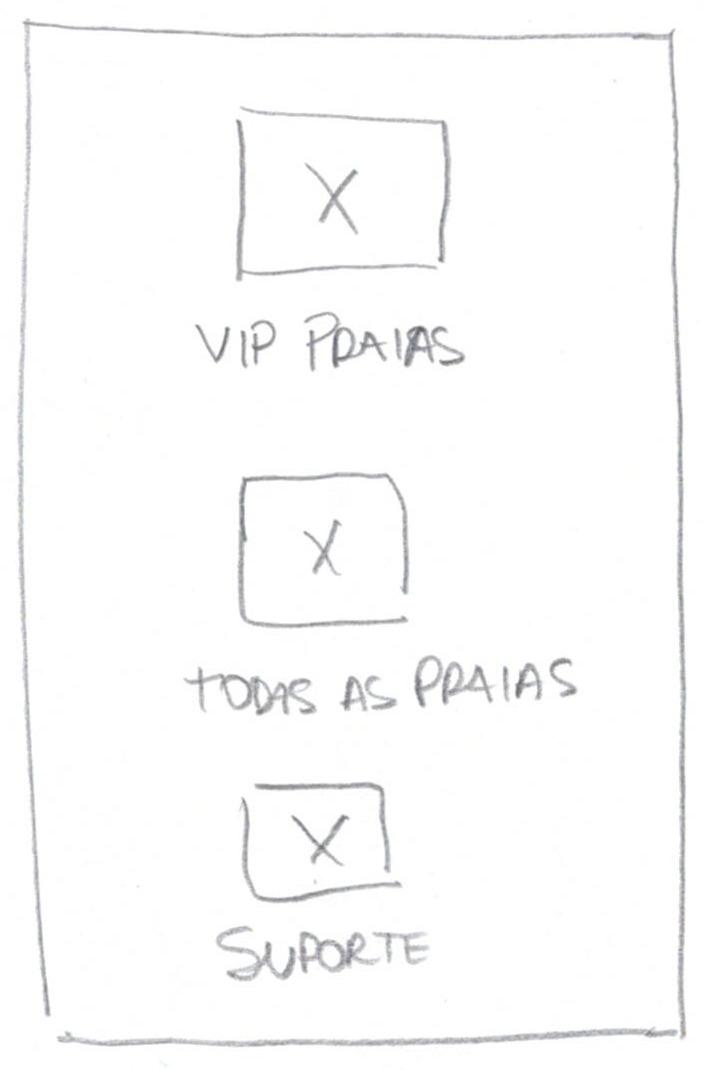 X
VIP PRAIAS
X
TODAS AS PRAIAS
X
SUPORTE